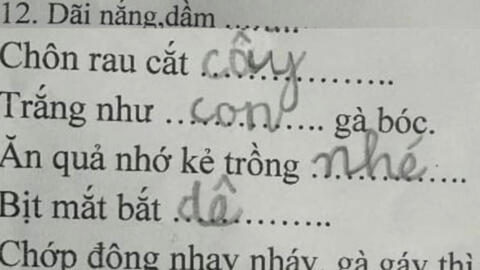 12. Dãi nắng,dầm ........
Chôn rau cắt cây
Trắng như con gà bóc.
Ăn quả nhớ kẻ trồng nhé
Bịt mắt bắt dê
Chớp đông nhay nháy, gà gáy thì